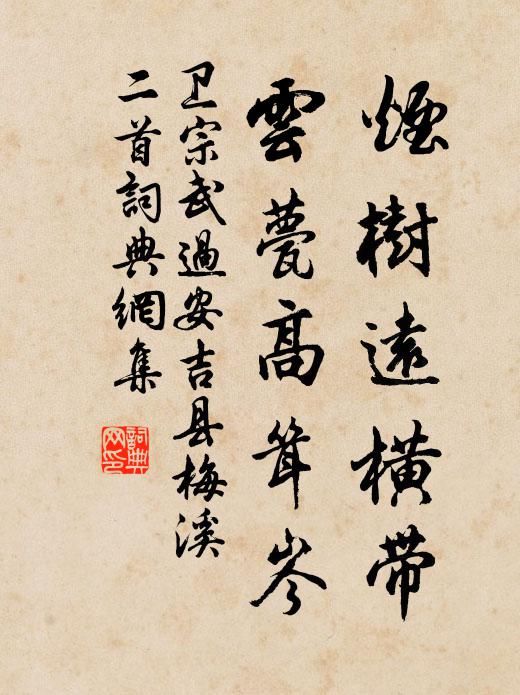 煙樹遠橫帶
雲甍高聳岑
卫宗武過安吉县梅溪
二首詞典網集
詞典網印